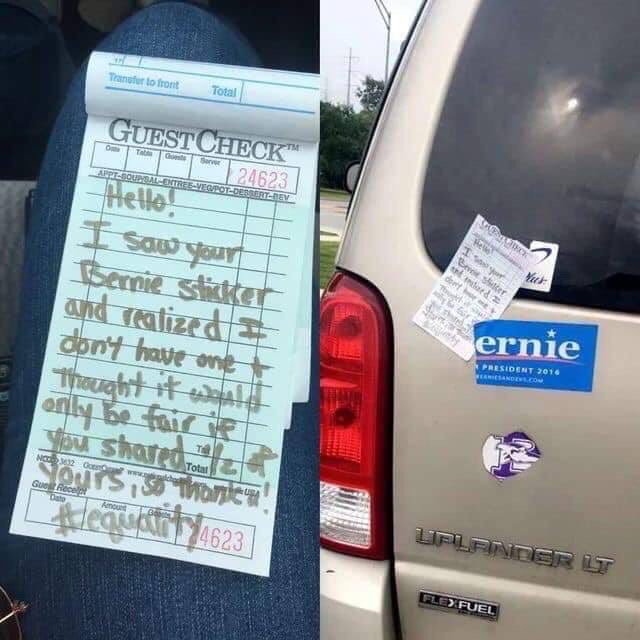 Transfer to front
Total
GUEST CHECK™
Date Table Guests Server
24623
APPT-SOUP/SAL-ENTREE-VEG/POT-DESSERT-BEV
Hello!
I saw your
Bernie sticker
and realized I
don't have one +
thought it would
only be fair if
you shared 1/2 of
Tax
Total
yours, so thank u!
Guest Receipt
Date
Amount
#equality
24623
Hello!
I saw your
Bernie sticker
and realized I
ernie
PRESIDENT 2016
BERNIESANDERS.COM
UPLANDER LT
FLEXFUEL